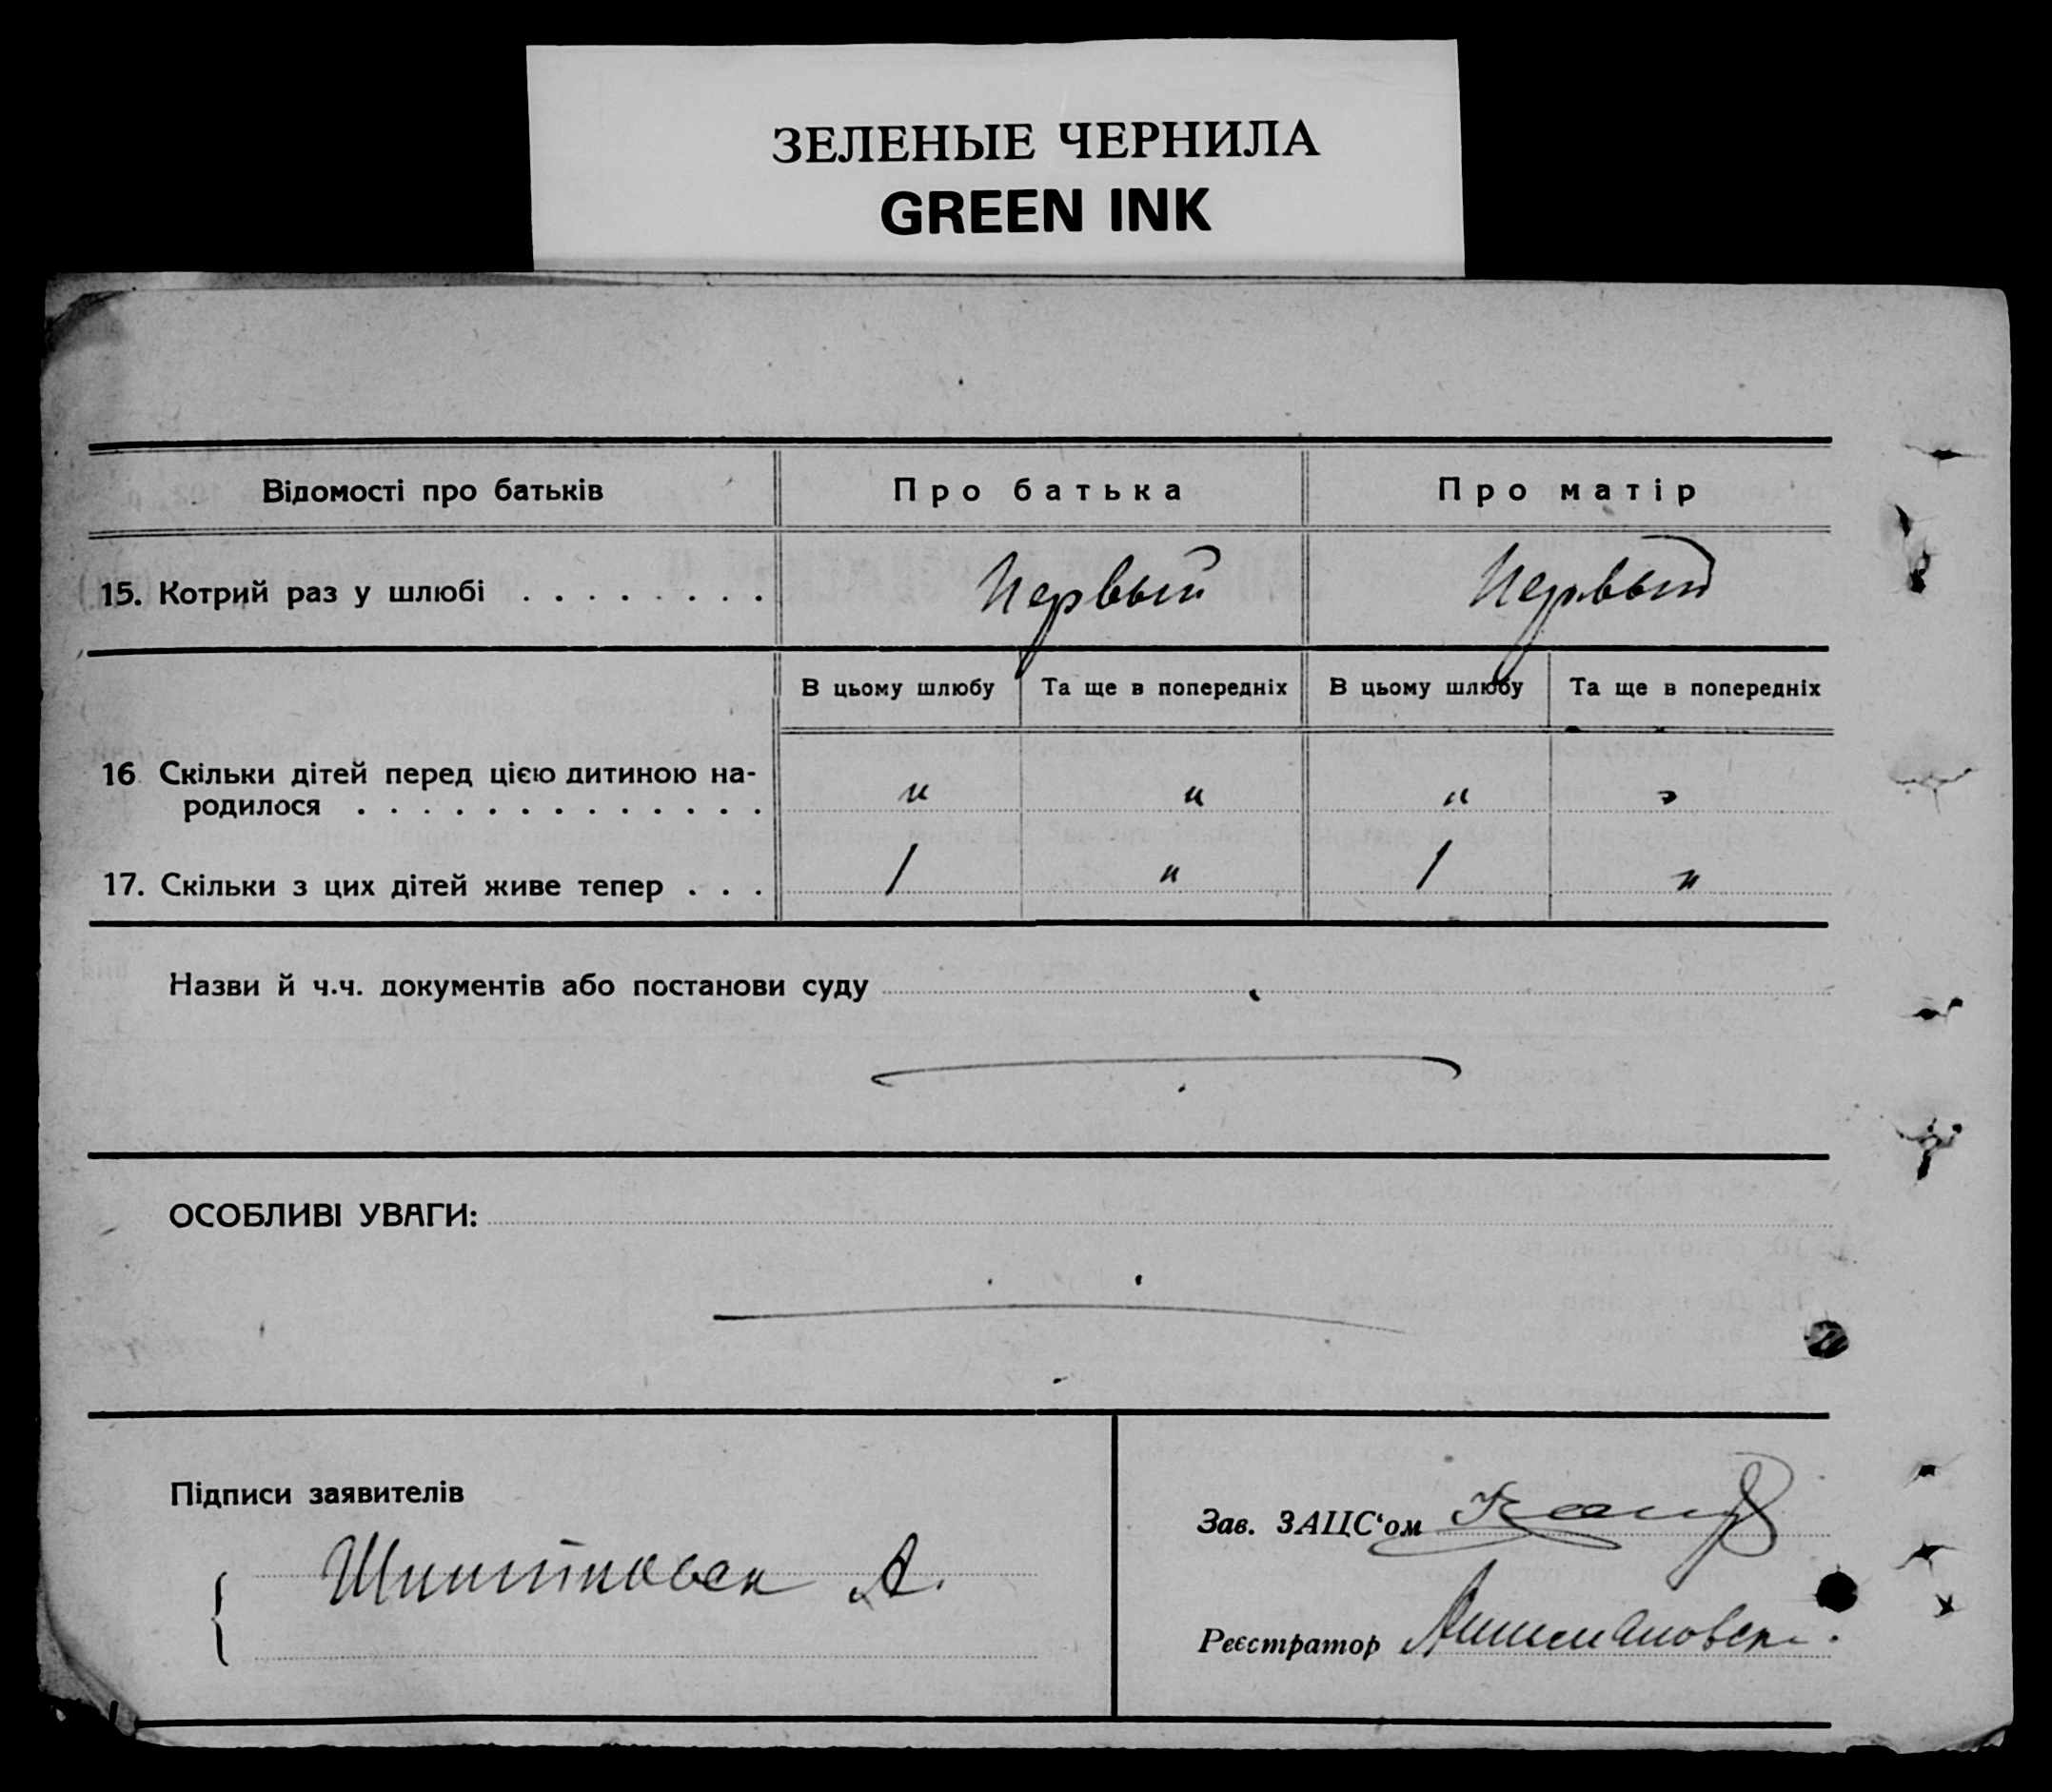 ЗЕЛЕНЫЕ ЧЕРНИЛА
GREEN INK
Відомості про батьків Про батька Про матір
15. Котрий раз у шлюбі . . . . . . . . Первый Первый
В цьому шлюбу Та ще в попередніх В цьому шлюбу Та ще в попередніх
16 Скільки дітей перед цією дитиною на-
родилося . . . . . . . . . . . . . „ „ „ „
17. Скільки з цих дітей живе тепер . . . 1 „ 1 „
Назви й ч.ч. документів або постанови суду
ОСОБЛИВІ УВАГИ:
Підписи заявителів
Зав. ЗАЦС‘ом
А.
Реєстратор